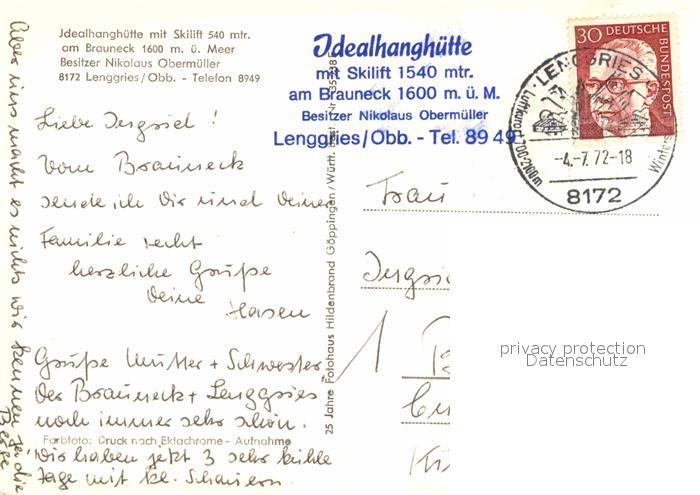 Jdealhanghütte mit Skilift 540 mtr.
am Brauneck 1600 m. ü. Meer
Besitzer Nikolaus Obermüller
8172 Lenggries/Obb. - Telefon 8949
Jdealhanghütte
mit Skilift 1540 mtr.
am Brauneck 1600 m. ü. M.
Besitzer Nikolaus Obermüller
Lenggries/Obb. - Tel. 89 49
30 DEUTSCHE BUNDESPOST
LENGGRIES
Luftkurort 700-2100m
Winters
-4.-7.72-18
8172
Liebe Irmgard !
Vom Brauneck
sende ich Dir und Deiner
Familie recht
herzliche Grüße
Deine
Hasen
Grüße Mutter + Schwester
Der Brauneck + Lenggries
noch immer sehr schön.
Farbfoto: Druck nach Ektachrome - Aufnahme
Wir haben jetzt 3 sehr kühle
Tage mit kl. Schauern.
Aber uns macht es nichts wir kennen ja die
Berge
25 Jahre Fotohaus Hildenbrand Göppingen / Württ.
Frau
1
privacy protection
Datenschutz